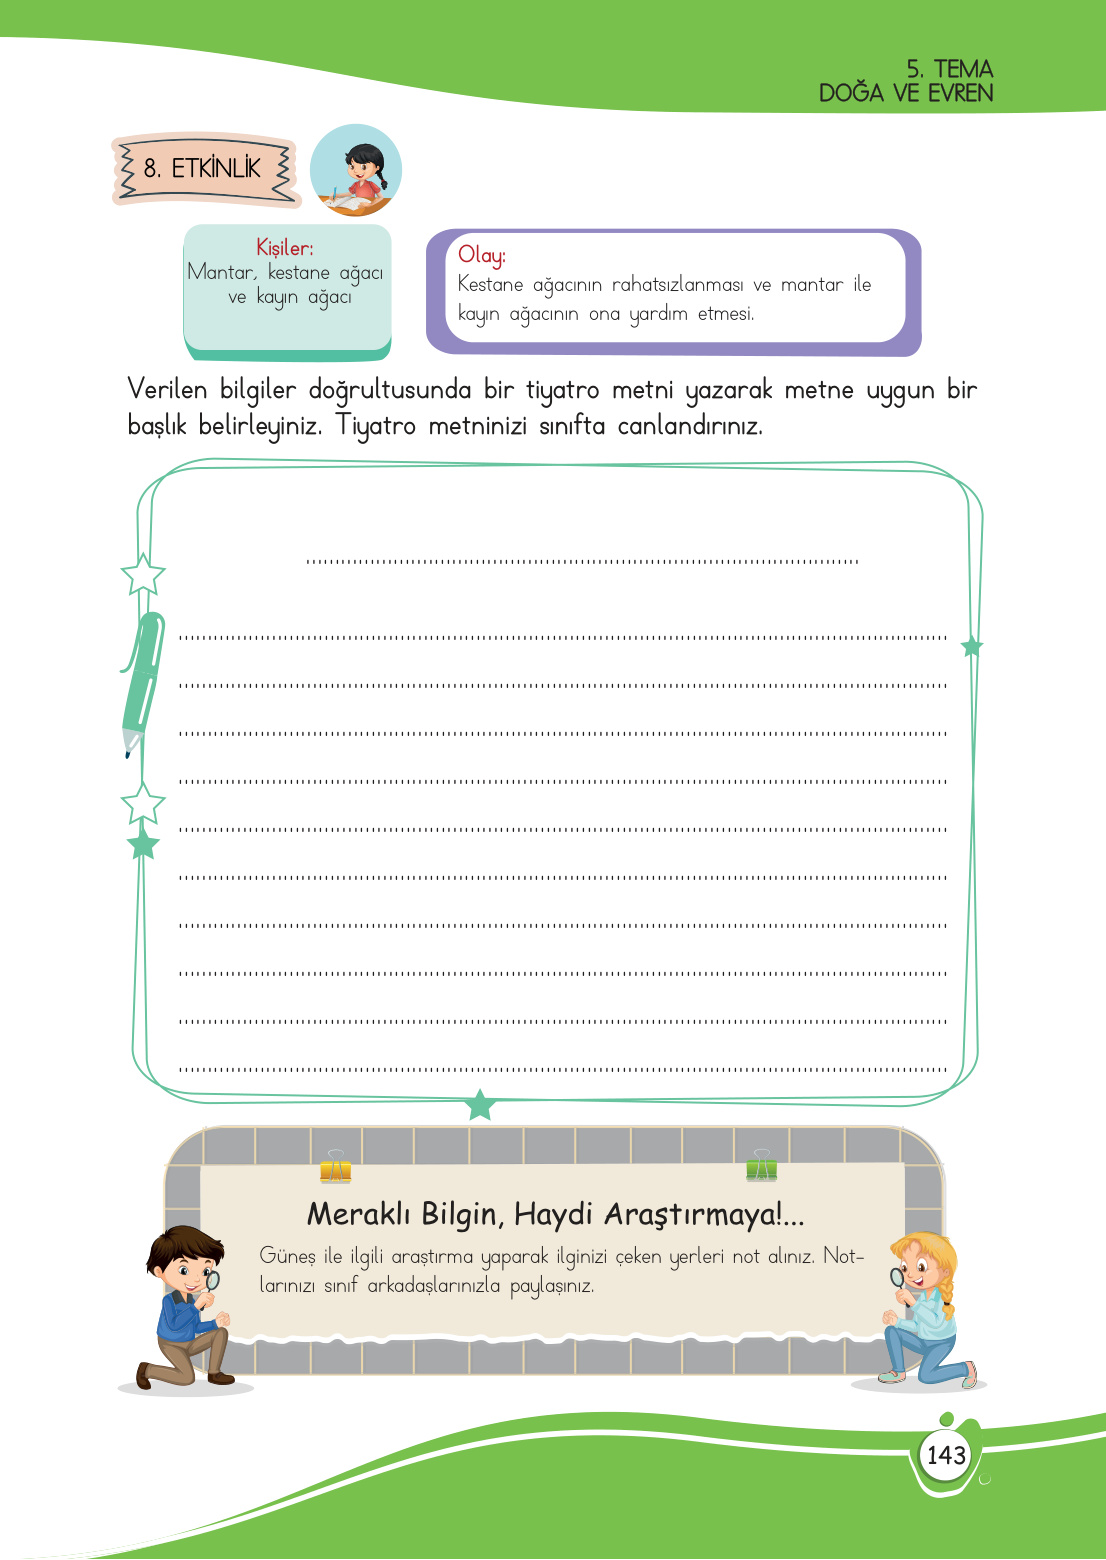 5. TEMA
DOĞA VE EVREN
8. ETKİNLİK
Kişiler:
Mantar, kestane ağacı
ve kayın ağacı
Olay:
Kestane ağacının rahatsızlanması ve mantar ile
kayın ağacının ona yardım etmesi.
Verilen bilgiler doğrultusunda bir tiyatro metni yazarak metne uygun bir
başlık belirleyiniz. Tiyatro metninizi sınıfta canlandırınız.
Meraklı Bilgin, Haydi Araştırmaya!...
Güneş ile ilgili araştırma yaparak ilginizi çeken yerleri not alınız. Not-
larınızı sınıf arkadaşlarınızla paylaşınız.
143